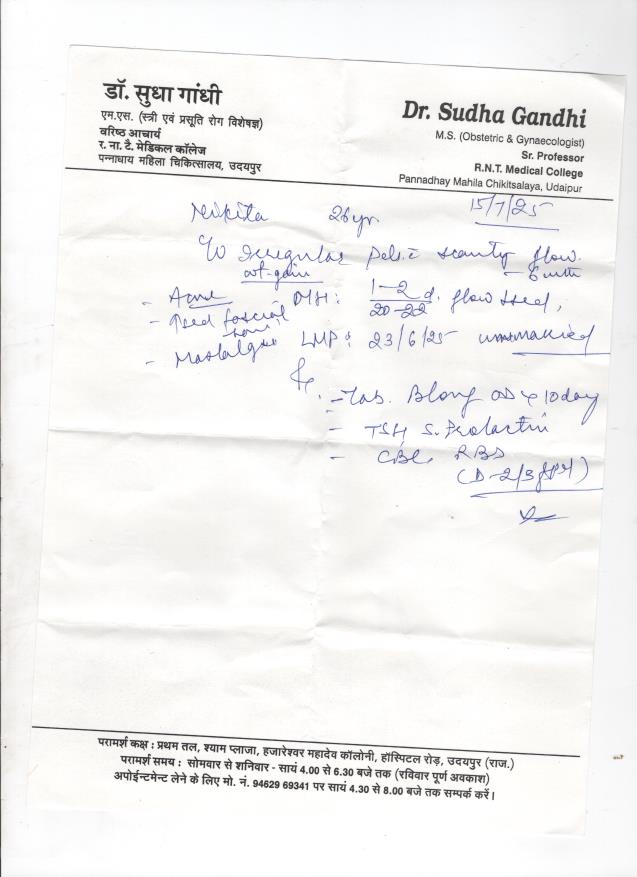 डॉ. सुधा गांधी
एम.एस. (स्त्री एवं प्रसूति रोग विशेषज्ञ)
वरिष्ठ आचार्य
र. ना. टै. मेडिकल कॉलेज
पन्नाधाय महिला चिकित्सालय, उदयपुर
Dr. Sudha Gandhi
M.S. (Obstetric & Gynaecologist)
Sr. Professor
R.N.T. Medical College
Pannadhay Mahila Chikitsalaya, Udaipur
15/7/25
Nikita 26 yr.
C/o Irregular scanty flow.
wt-gain
- Acne MH: 1-2 d. flow
20-22
- Mastalgia LMP: 23/6/25 unmarried
Rx.
- Tab. Blong OD x 10 day
- TSH S. Prolactin
- CBC RBS
(D-2/3
परामर्श कक्ष : प्रथम तल, श्याम प्लाजा, हजारेश्वर महादेव कॉलोनी, हॉस्पिटल रोड़, उदयपुर (राज.)
परामर्श समय : सोमवार से शनिवार - सायं 4.00 से 6.30 बजे तक (रविवार पूर्ण अवकाश)
अपोईन्टमेन्ट लेने के लिए मो. नं. 94629 69341 पर सायं 4.30 से 8.00 बजे तक सम्पर्क करें।